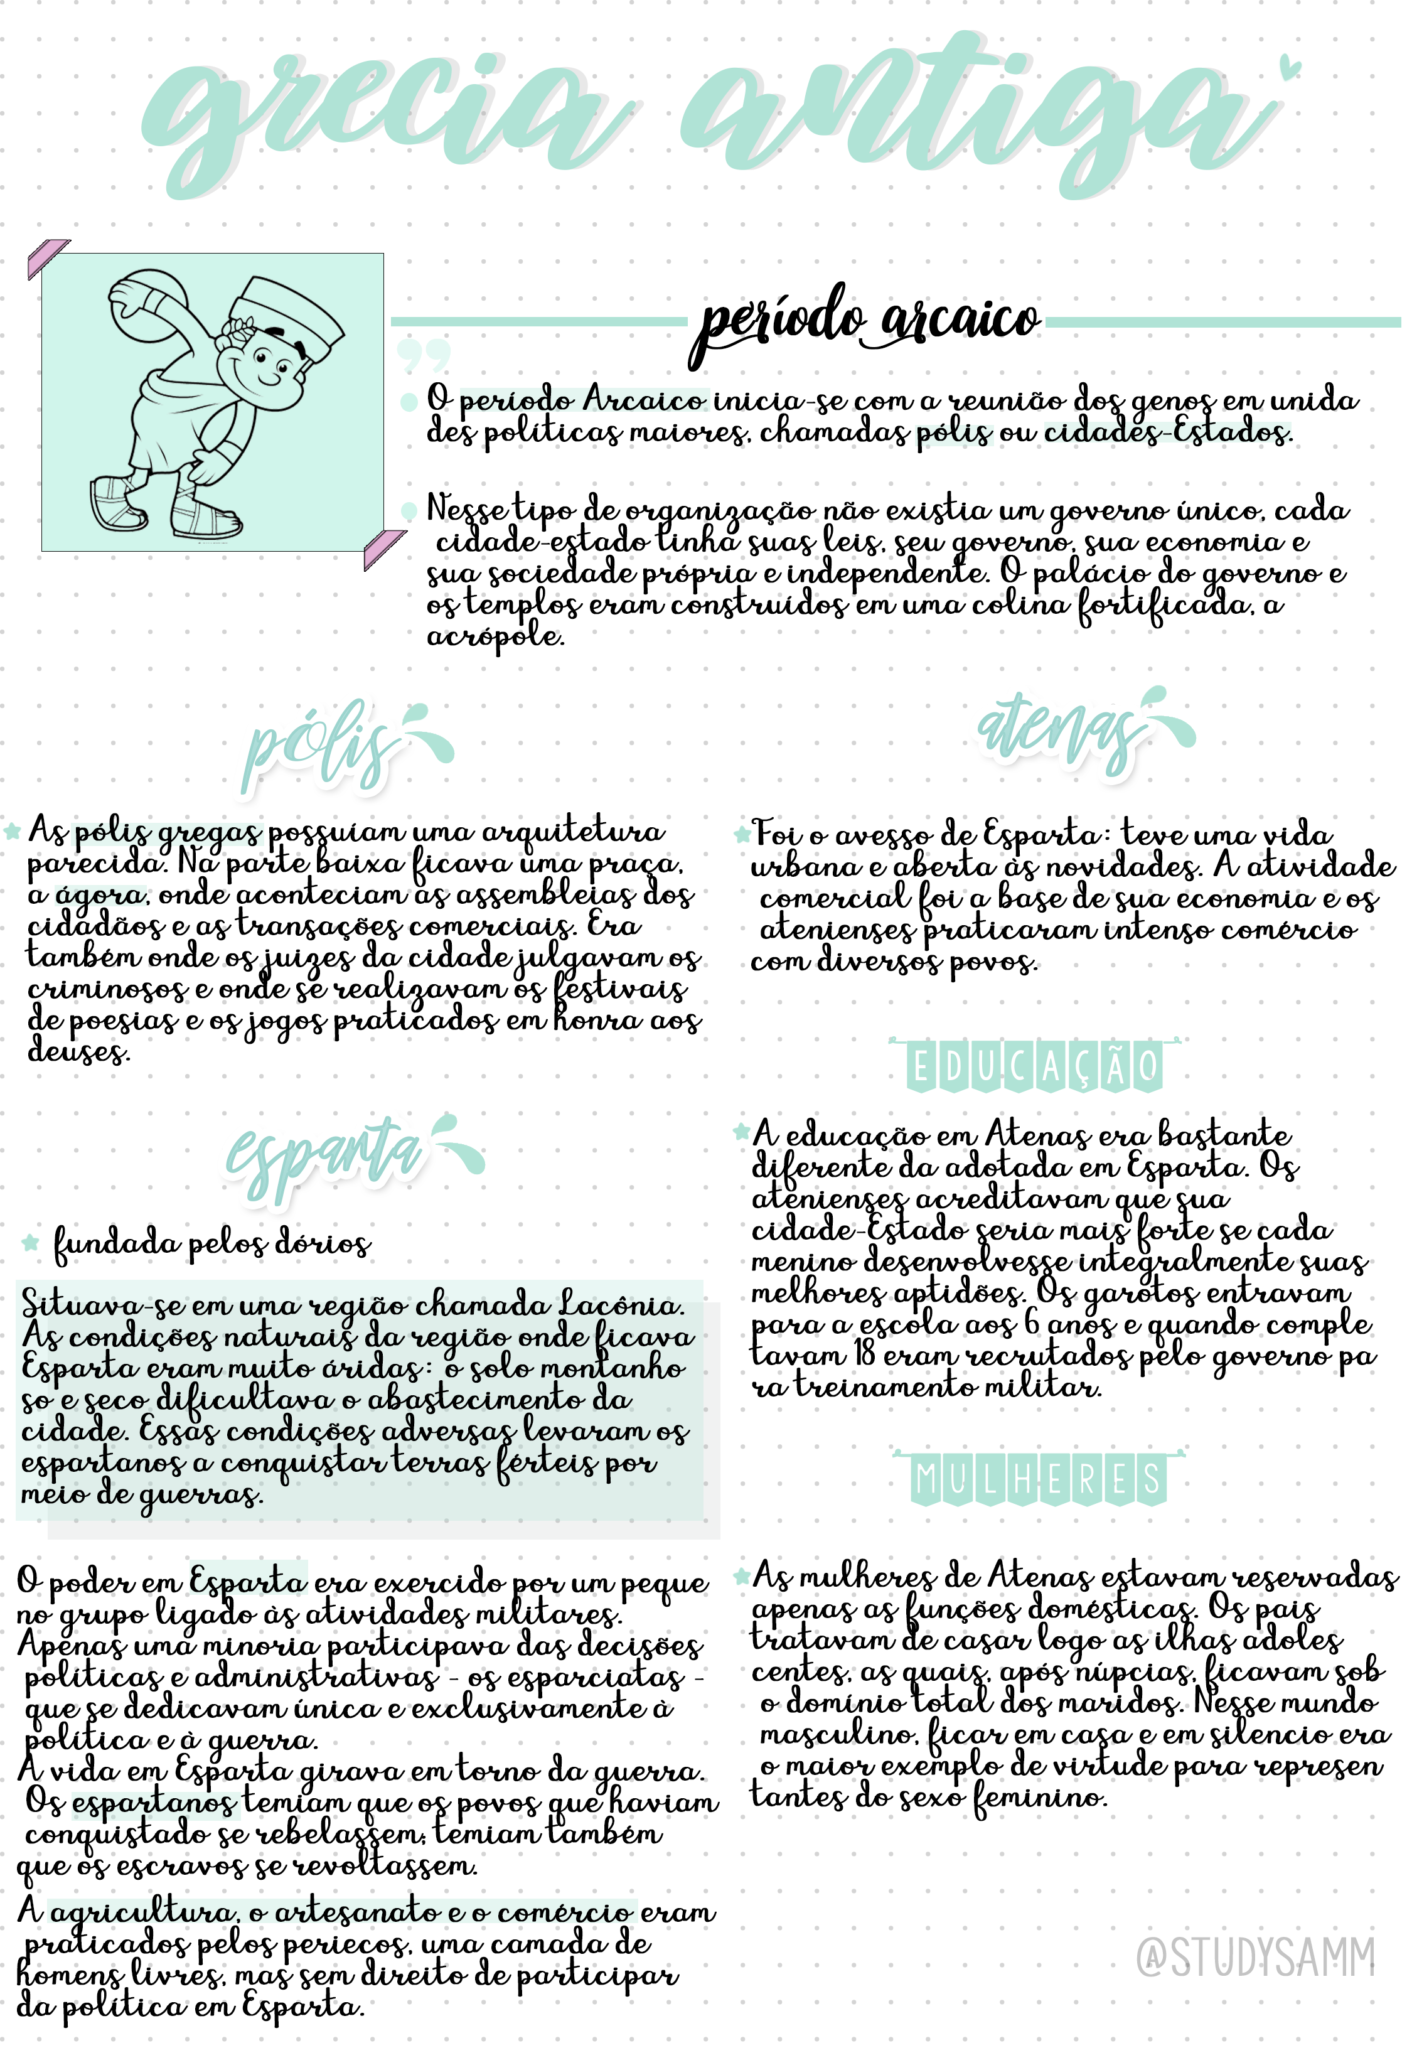 grecia antiga
período arcaico
O período Arcaico inicia-se com a reunião dos genos em unida
des políticas maiores, chamadas pólis ou cidades-Estados.
Nesse tipo de organização não existia um governo único, cada
cidade-estado tinha suas leis, seu governo, sua economia e
sua sociedade própria e independente. O palácio do governo e
os templos eram construídos em uma colina fortificada, a
acrópole.
pólis
As pólis gregas possuíam uma arquitetura
parecida. Na parte baixa ficava uma praça,
a ágora, onde aconteciam as assembleias dos
cidadãos e as transações comerciais. Era
também onde os juizes da cidade julgavam os
criminosos e onde se realizavam os festivais
de poesias e os jogos praticados em honra aos
deuses.
esparta
fundada pelos dórios
Situava-se em uma região chamada Lacônia.
As condições naturais da região onde ficava
Esparta eram muito áridas: o solo montanho
so e seco dificultava o abastecimento da
cidade. Essas condições adversas levaram os
espartanos a conquistar terras férteis por
meio de guerras.
O poder em Esparta era exercido por um peque
no grupo ligado às atividades militares.
Apenas uma minoria participava das decisões
políticas e administrativas - os esparciatas -
que se dedicavam única e exclusivamente à
política e à guerra.
A vida em Esparta girava em torno da guerra.
Os espartanos temiam que os povos que haviam
conquistado se rebelassem; temiam também
que os escravos se revoltassem.
A agricultura, o artesanato e o comércio eram
praticados pelos periecos, uma camada de
homens livres, mas sem direito de participar
da política em Esparta.
atenas
Foi o avesso de Esparta: teve uma vida
urbana e aberta às novidades. A atividade
comercial foi a base de sua economia e os
atenienses praticaram intenso comércio
com diversos povos.
EDUCAÇÃO
A educação em Atenas era bastante
diferente da adotada em Esparta. Os
atenienses acreditavam que sua
cidade-Estado seria mais forte se cada
menino desenvolvesse integralmente suas
melhores aptidões. Os garotos entravam
para a escola aos 6 anos e quando comple
tavam 18 eram recrutados pelo governo pa
ra treinamento militar.
MULHERES
As mulheres de Atenas estavam reservadas
apenas as funções domésticas. Os pais
tratavam de casar logo as ilhas adoles
centes, as quais, após núpcias, ficavam sob
o domínio total dos maridos. Nesse mundo
masculino, ficar em casa e em silencio era
o maior exemplo de virtude para represen
tantes do sexo feminino.
@STUDYSAMM